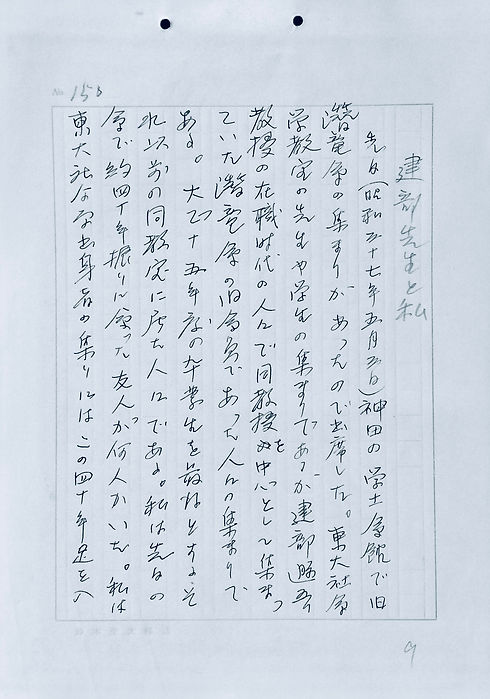 No. 156
建部先生と私
先日(昭和三十七年五月三日)神田の学士会館で旧
潜竜会の集まりがあったので出席した。東大社会
学教室の先生や学生の集まりであるが建部遯吾
教授の在職時代の人々で同教授を中心として集まっ
ていた潜竜会の旧会員であった人々の集まりで
ある。大正十五年度の卒業生を最後とするそ
れ以前の同教室に居た人々である。私は先日の
会で約四十年振りに会った友人が何人かいた。私は
東大社会学出身者の集りにはこの四十年足を入
9